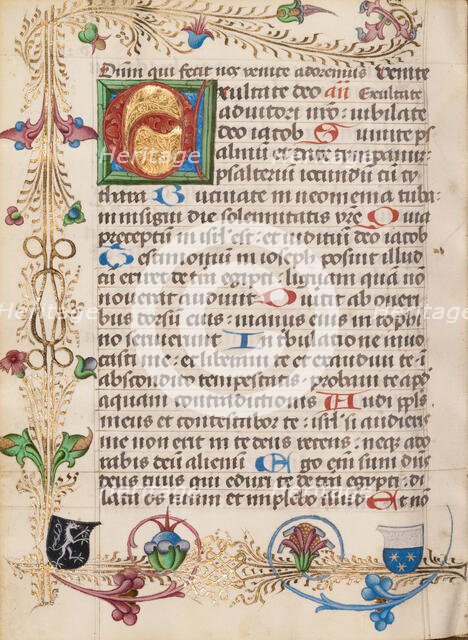 Dnm qui fecit nos venite adoremus venite
Exultate deo aii Exultate
adiutori nro: iubilate
deo iacob Sumite ps
almu et date timpanum:
psalteriu iocundu cu cy
thara Bucinate in neomenia tuba:
in insigni die solemnitatis vre Quia
preceptu in isrl est: et iudiciu deo iacob
Testimoniu in ioseph posuit illud
cu exiret de tra egypti: ligua qua no
noverat audivit Divertit ab oneri
bus dorsu eius: manus eius in cophi
no servierunt In tribulatione invo
casti me: et liberavi te et exaudivi te: i
abscondito tempestatis: probavi te apd
aquam contradictionis Audi ppls
meus et contestabor te: isrl si audieris
me non erit in te deus recens: neqz ado
rabis deu alienu Ego enim sum dns
deus tuus qui eduxi te de tra egypti: di
lata os tuum et implebo illud Et no
Heritage
Heritage
Heritage
Heritage
Heritage